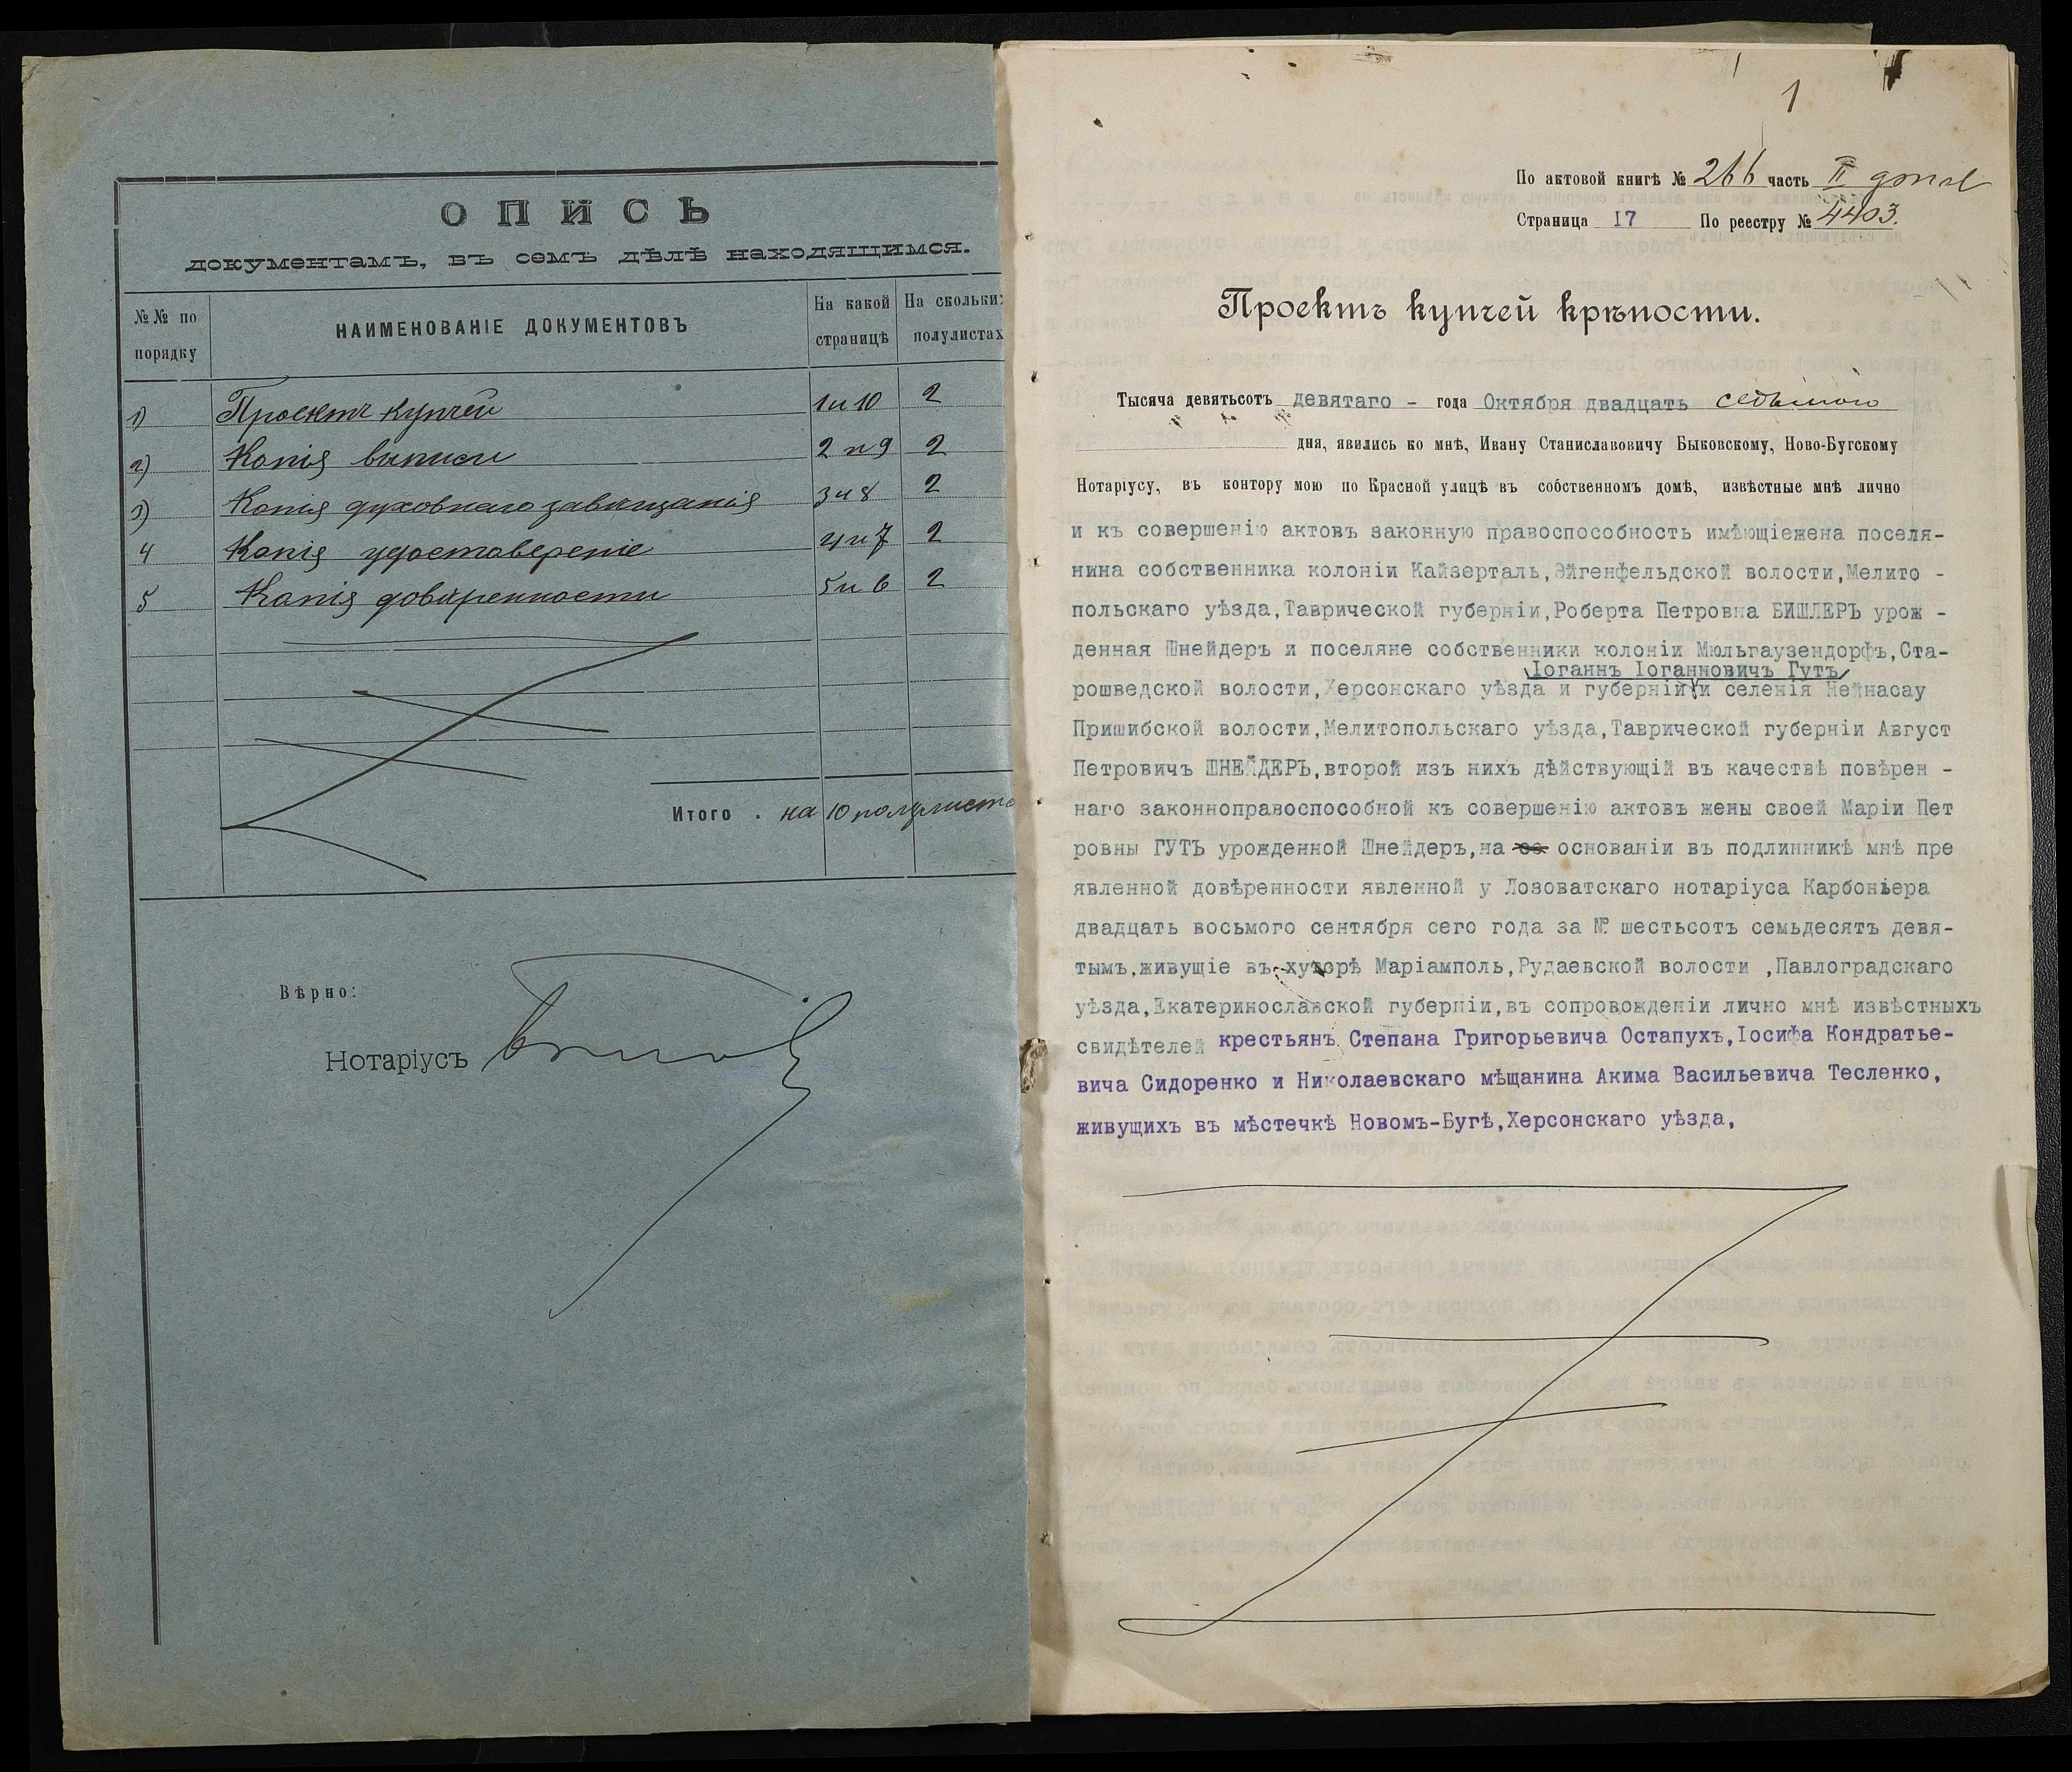 ОПИСЬ
документамъ, въ семъ дѣлѣ находящимся.
№№ по порядку
НАИМЕНОВАНІЕ ДОКУМЕНТОВЪ
На какой страницѣ
На сколькихъ полулистах
1) Проектъ купчей 1 и 10 2
2) Копія выписи 2 и 9 2
3) Копія духовнаго завѣщанія 3 и 8 2
4 Копія удостовереніе 4 и 7 2
5 Копія довѣренности 5 и 6 2
Итого . на 10 полулиста
Вѣрно:
Нотаріусъ
1
По актовой книгѣ № 266 часть II
Страница 17 По реестру № 4403.
Проектъ купчей крѣпости.
Тысяча девятьсотъ девятаго - года Октября двадцать седьмого
дня, явились ко мнѣ, Ивану Станиславовичу Быковскому, Ново-Бугскому
Нотаріусу, въ контору мою по Красной улицѣ въ собственномъ домѣ, извѣстные мнѣ лично
и къ совершенію актовъ законную правоспособность имѣющіежена поселя-
нина собственника колоніи Кайзерталь,Эйгенфельдской волости,Мелито -
польскаго уѣзда,Таврической губерніи,Роберта Петровна БИШЛЕРЪ урож -
денная Шнейдеръ и поселяне собственники колоніи Мюльгаузендорфъ,Ста-
Іоганнъ Іоганновичъ Гутъ
рошведской волости,Херсонскаго уѣзда и губерній и селенія Нейнасау
Пришибской волости,Мелитопольскаго уѣзда,Таврической губерніи Август
Петровичъ ШНЕЙДЕРЪ,второй изъ нихъ дѣйствующій въ качествѣ повѣрен -
наго законноправоспособной къ совершенію актовъ жены своей Маріи Пет
ровны ГУТЪ урожденной Шнейдеръ,на основаніи въ подлинникѣ мнѣ пре
явленной довѣренности явленной у Лозоватскаго нотаріуса Карбоньера
двадцать восьмого сентября сего года за № шестьсотъ семьдесятъ девя-
тымъ,живущіе въ хуторѣ Маріамполь,Рудаевской волости ,Павлоградскаго
уѣзда,Екатеринославской губерніи,въ сопровожденіи лично мнѣ извѣстныхъ
свидѣтелей крестьянъ Степана Григорьевича Остапухъ,Іосифа Кондратье-
вича Сидоренко и Николаевскаго мѣщанина Акима Васильевича Тесленко,
живущихъ въ мѣстечкѣ Новомъ-Бугѣ,Херсонскаго уѣзда,